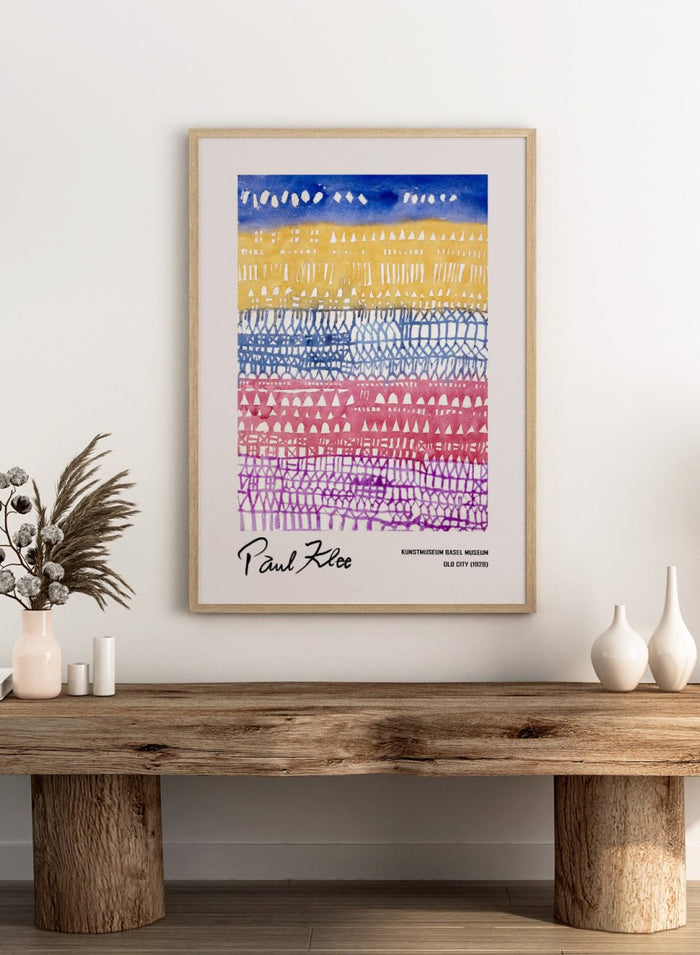 Paul Klee
KUNSTMUSEUM BASEL MUSEUM
OLD CITY (1928)